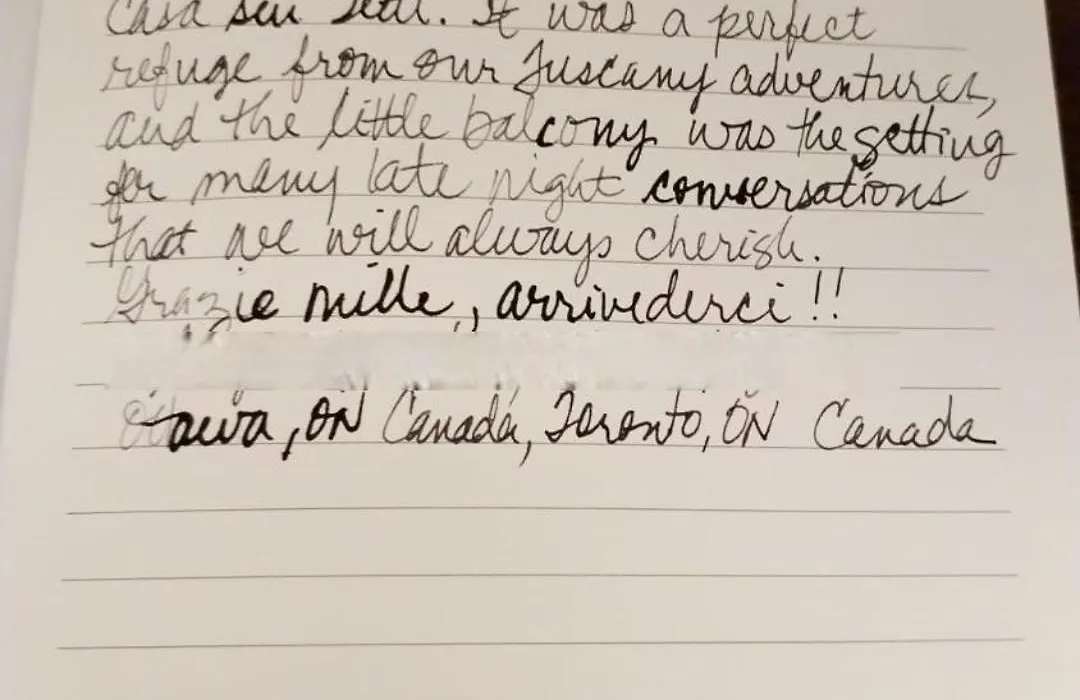 Casa sui Tetti. It was a perfect
refuge from our Tuscany adventures,
and the little balcony was the setting
for many late night conversations
that we will always cherish.
Grazie mille, arrivederci!!
Ottawa, ON Canada, Toronto, ON Canada